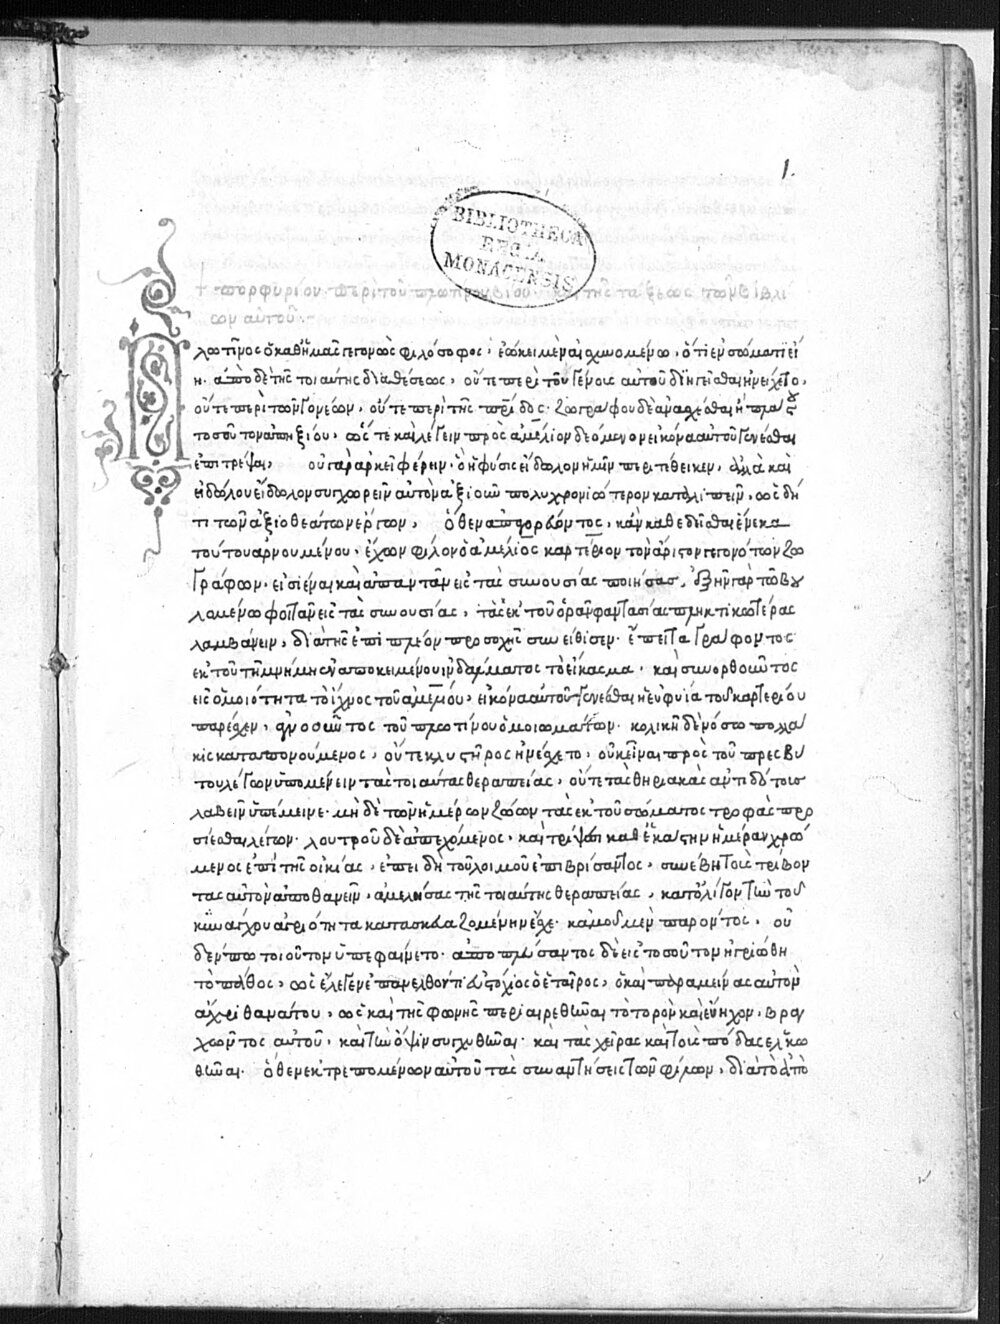 1.
BIBLIOTHECA
REGIA
MONACENSIS
† πορφυρίου περὶ τοῦ πλωτίνου βίου· καὶ τῆς τάξεως τῶν βιβλί
ων αὐτοῦ:-
Πλωτῖνος ὁ καθ' ἡμᾶς γεγονὼς φιλόσοφος, ἐώκει μὲν αἰσχυνομένω, ὅτι ἐν σώματι εἴ
η. ἀπὸ δὲ τῆς τοιαύτης διαθέσεως, οὔτε περὶ τοῦ γένους αὐτοῦ διηγεῖσθαι ἠνείχετο,
οὔτε περὶ τῶν γονέων, οὔτε περὶ τῆς πρίδος· ζωγράφου δὲ ἀνασχέσθαι ἢ πλάστου
τοσοῦτον ἀπηξίου, ὥστε καὶ λέγειν πρὸς ἀμέλιον δεόμενον εἰκόνα αὐτοῦ γενέσθαι
ἐπιτρέψαι, οὐ γὰρ ἀρκεῖ φέρειν ὃ ἡ φύσις εἴδωλον ἡμῖν περιτέθεικεν, ἀλλὰ καὶ
εἰδώλου εἴδωλον συγχωρεῖν αὐτὸν ἀξιοῦν πολυχρονιώτερον καταλιπεῖν, ὡς δή
τι τῶν ἀξιοθεάτων ἔργων, ὅθεν ἀπαγορεύοντος, κἂν καθεδεῖσθαι ἕνεκα
τούτου ἀρνουμένου, ἔχων φίλον ὁ ἀμέλιος καρτέριον τὸν ἄριστον γεγονότων ζω
γράφων, εἰσιέναι καὶ ἀπαντᾶν εἰς τὰς συνουσίας ποιήσας, ἐξῆν γὰρ τῶ βου
λομένω φοιτᾶν εἰς τὰς συνουσίας, τὰς ἐκ τοῦ ὁρᾶν φαντασίας πληκτικωτέρας
λαμβάνειν, διὰ τῆς ἐπὶ πλέον προσοχῆς συνείθισεν· ἔπειτα γράφοντος
ἐκ τοῦ τῇ μνήμῃ ἐναποκειμένου ἰνδάλματος τὸ εἴκασμα, καὶ συνορθοῦντος
εἰς ὁμοιότητα τὸ ἴχνος τοῦ ἀμελίου, εἰκόνα αὐτοῦ γενέσθαι ἡ εὐφυΐα τοῦ καρτερίου
παρέσχεν, ἀγνοοῦντος τοῦ πλωτίνου ὁμοιοτάτην. κοιλικῆ δὲ νόσω πολλά
κις καταπονούμενος, οὔτε κλυστῆρος ἠνέσχετο, οὐκ εἶναι πρὸς τοῦ πρεσβύ
του λέγων ὑπομένειν τὰς τοιαύτας θεραπείας, οὔτε τὰς θηριακὰς ἀντιδότους
λαβεῖν ὑπέμεινε· μὴ δὲ τῶν ἡμέρων ζώων τὰς ἐκ τοῦ σώματος τροφὰς προ
σίεσθαι λέγων. λουτροῦ δὲ ἀπεχόμενος, καὶ τρίψεσι καθ' ἑκάστην ἡμέραν χρώ
μενος ἐπὶ τῆς οἰκίας, ἐπειδὴ τοῦ λοιμοῦ ἐπιβρίσαντος, συνέβη τοὺς τρίβον
τας αὐτὸν ἀποθανεῖν, ἀμελήσας τῆς τοιαύτης θεραπείας, κατ' ὀλίγον τὴν τοῦ
κυνάγχου ἀγριότητα κατασκευαζομένην ἔσχε· κἀμοῦ μὲν παρόντος, οὐ
δέν πω τοιοῦτον ὑπεφαίνετο· ἀποπλεύσαντος δὲ εἰς τοσοῦτον ἠγριώθη
τὸ πάθος, ὡς ἔλεγεν ἐπανελθόντι εὐστόχιος ὁ ἑταῖρος, ὁ καὶ παραμείνας αὐτῶ
ἄχρι θανάτου, ὡς καὶ τῆς φωνῆς περιαιρεθῆναι τὸ τορὸν καὶ εὔηχον, βραγ
χῶντος αὐτοῦ, καὶ τὴν ὄψιν συγχυθῆναι· καὶ τὰς χεῖρας καὶ τοὺς πόδας ἑλκω
θῆναι. ὅθεν ἐκτρεπομένων αὐτοῦ τὰς συναντήσεις τῶν φίλων, διὰ τὸ ἀπὸ